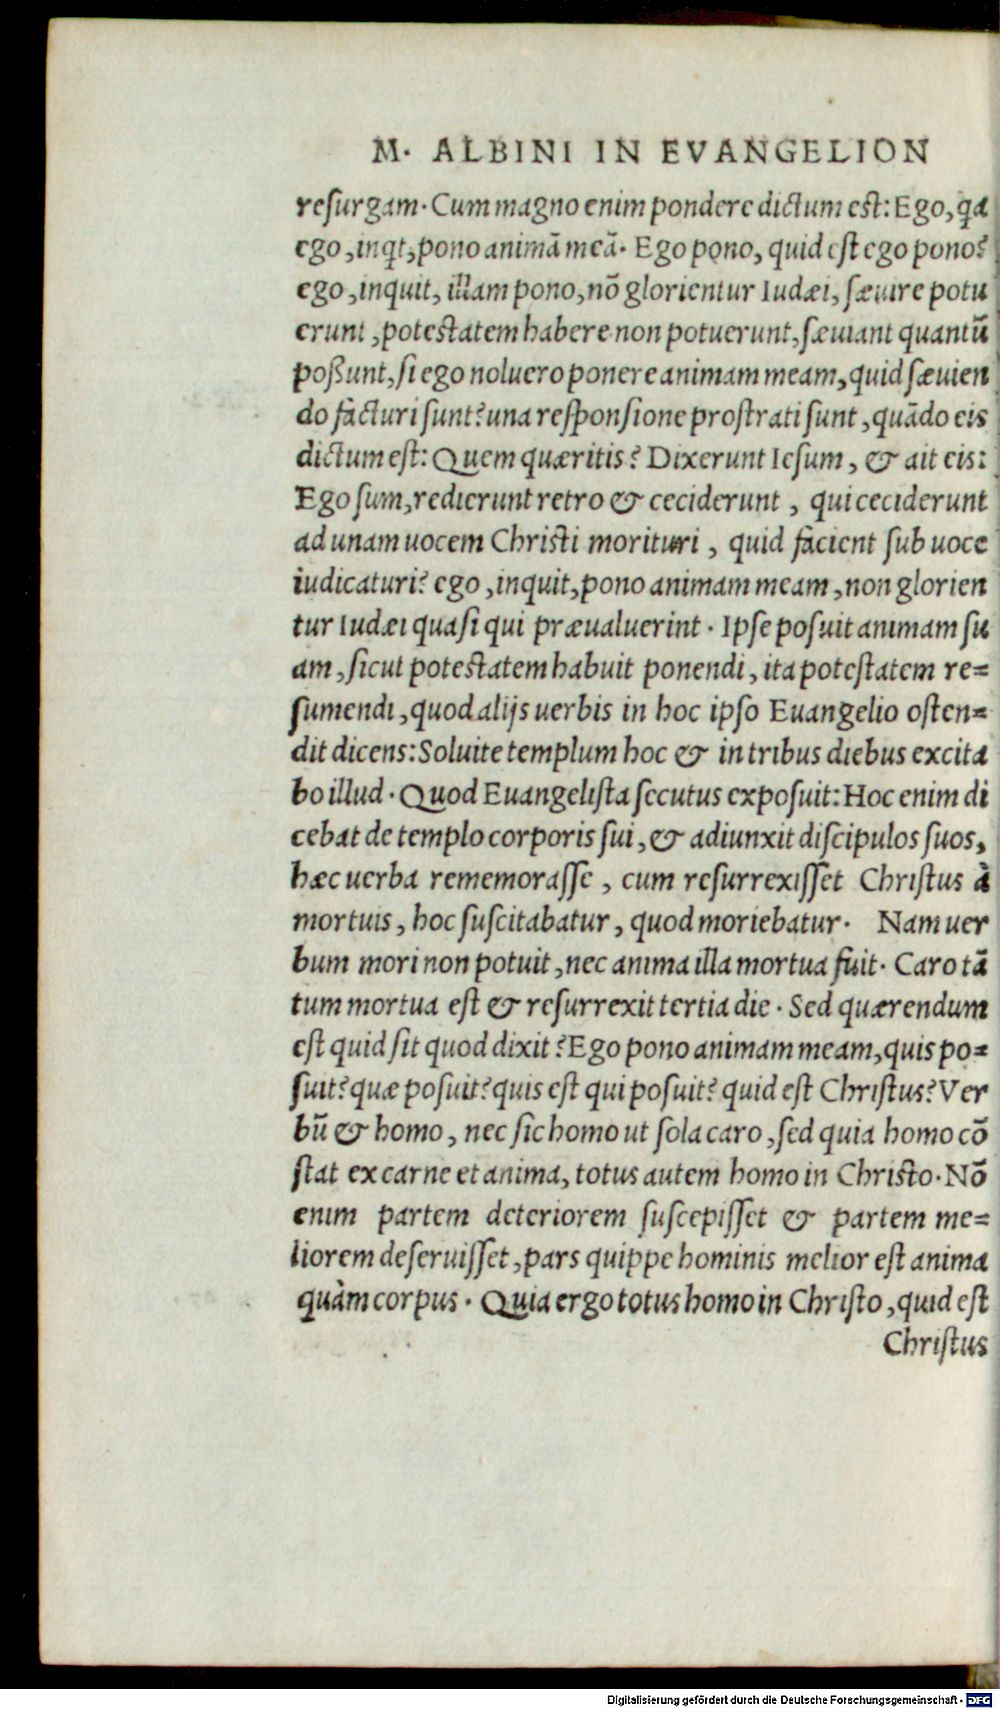 M. ALBINI IN EVANGELION
reſurgam. Cum magno enim pondere dictum est: Ego, q̃a
ego, inqt, pono animā meā. Ego pono, quid eſt ego pono?
ego, inquit, illam pono, nō glorientur Iudæi, ſæuire potu
erunt, potestatem habere non potuerunt, ſæuiant quantū
poßunt, ſi ego noluero ponere animam meam, quid ſæuien
do facturi ſunt? una reſponſione proſtrati ſunt, quādo eis
dictum eſt: Quem quæritis? Dixerunt Ieſum, & ait eis:
Ego ſum, redierunt retro & ceciderunt, qui ceciderunt
ad unam uocem Christi morituri, quid facient ſub uoce
iudicaturi? ego, inquit, pono animam meam, non glorien
tur Iudæi quaſi qui præualuerint. Ipſe poſuit animam ſu
am, ſicut potestatem habuit ponendi, ita poteſtatem re=
ſumendi, quod alijs uerbis in hoc ipſo Euangelio oſten=
dit dicens: Soluite templum hoc & in tribus diebus excita
bo illud. Quod Euangeliſta ſecutus expoſuit: Hoc enim di
cebat de templo corporis ſui, & adiunxit diſcipulos ſuos,
hæc uerba rememoraſſe, cum reſurrexiſſet Chriſtus à
mortuis, hoc ſuſcitabatur, quod moriebatur. Nam uer
bum mori non potuit, nec anima illa mortua fuit. Caro tā
tum mortua eſt & reſurrexit tertia die. Sed quærendum
eſt quid ſit quod dixit? Ego pono animam meam, quis po=
ſuit? quæ poſuit? quis eſt qui poſuit? quid eſt Chriſtus? Ver
bū & homo, nec ſic homo ut ſola caro, ſed quia homo cō
ſtat ex carne et anima, totus autem homo in Chriſto. Nō
enim partem deteriorem ſuſcepiſſet & partem me=
liorem deſeruiſſet, pars quippe hominis melior eſt anima
quàm corpus. Quia ergo totus homo in Chriſto, quid eſt
Chriſtus
Digitalisierung gefördert durch die Deutsche Forschungsgemeinschaft - DFG